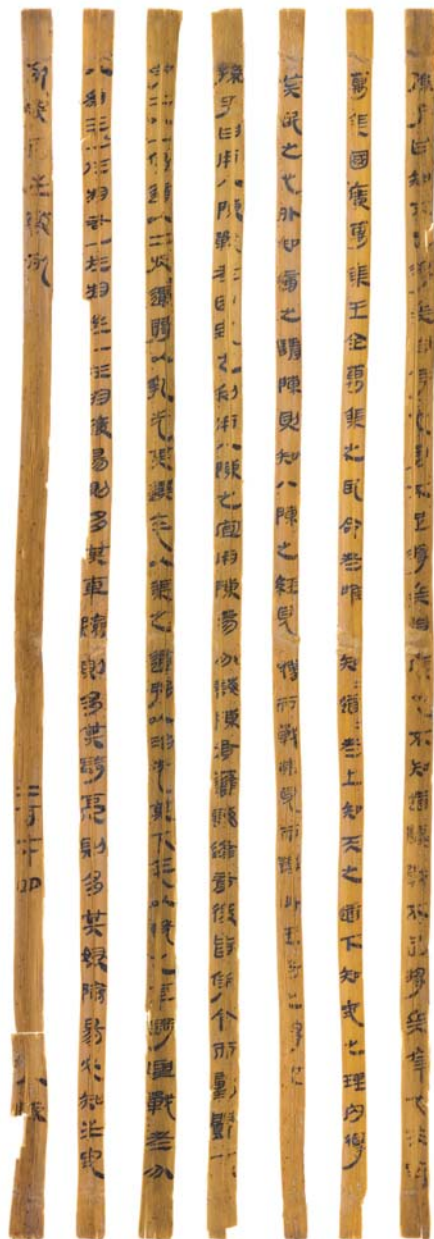 孫子曰知不足將兵自侍也勇不足將兵自廣也不知道數戰不足將兵幸也夫安
萬乘國廣萬乘王全萬乘之民命者唯知=道=者上知天之道下知地之理內得
其民之心外知適之請陳則知八陳之經見勝而戰弗見而諍此王者之將也
孫子曰用八陳戰者因地之利用八陳之宜用陳參分誨陳有鋒誨鋒有後皆侍令而動鬭一
守二以一侵適以二收適弱以亂先其選卒以乘之適強以治先其下卒以誘之車騎與戰者分
以為三一在於右一在於左一在於後易則多其車險則多其騎厄則多其弩險易必知生地
死地居生擊死 二百一十四 八陳